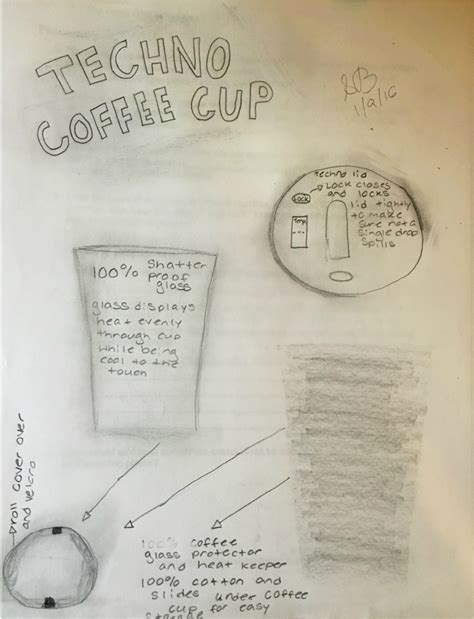 TECHNO
COFFEE CUP
1/9/16
Techno lid
Lock
Lock closes
and locks
lid tightly
to make
sure not a
single drop
spills
Temp
100% Shatter
proof
glass
glass displays
heat evenly
through cup
while being
cool to the
touch
roll cover over
and velcro
100% coffee
glass protector
and heat keeper
100% cotton and
slides under coffee
cup for easy
storage